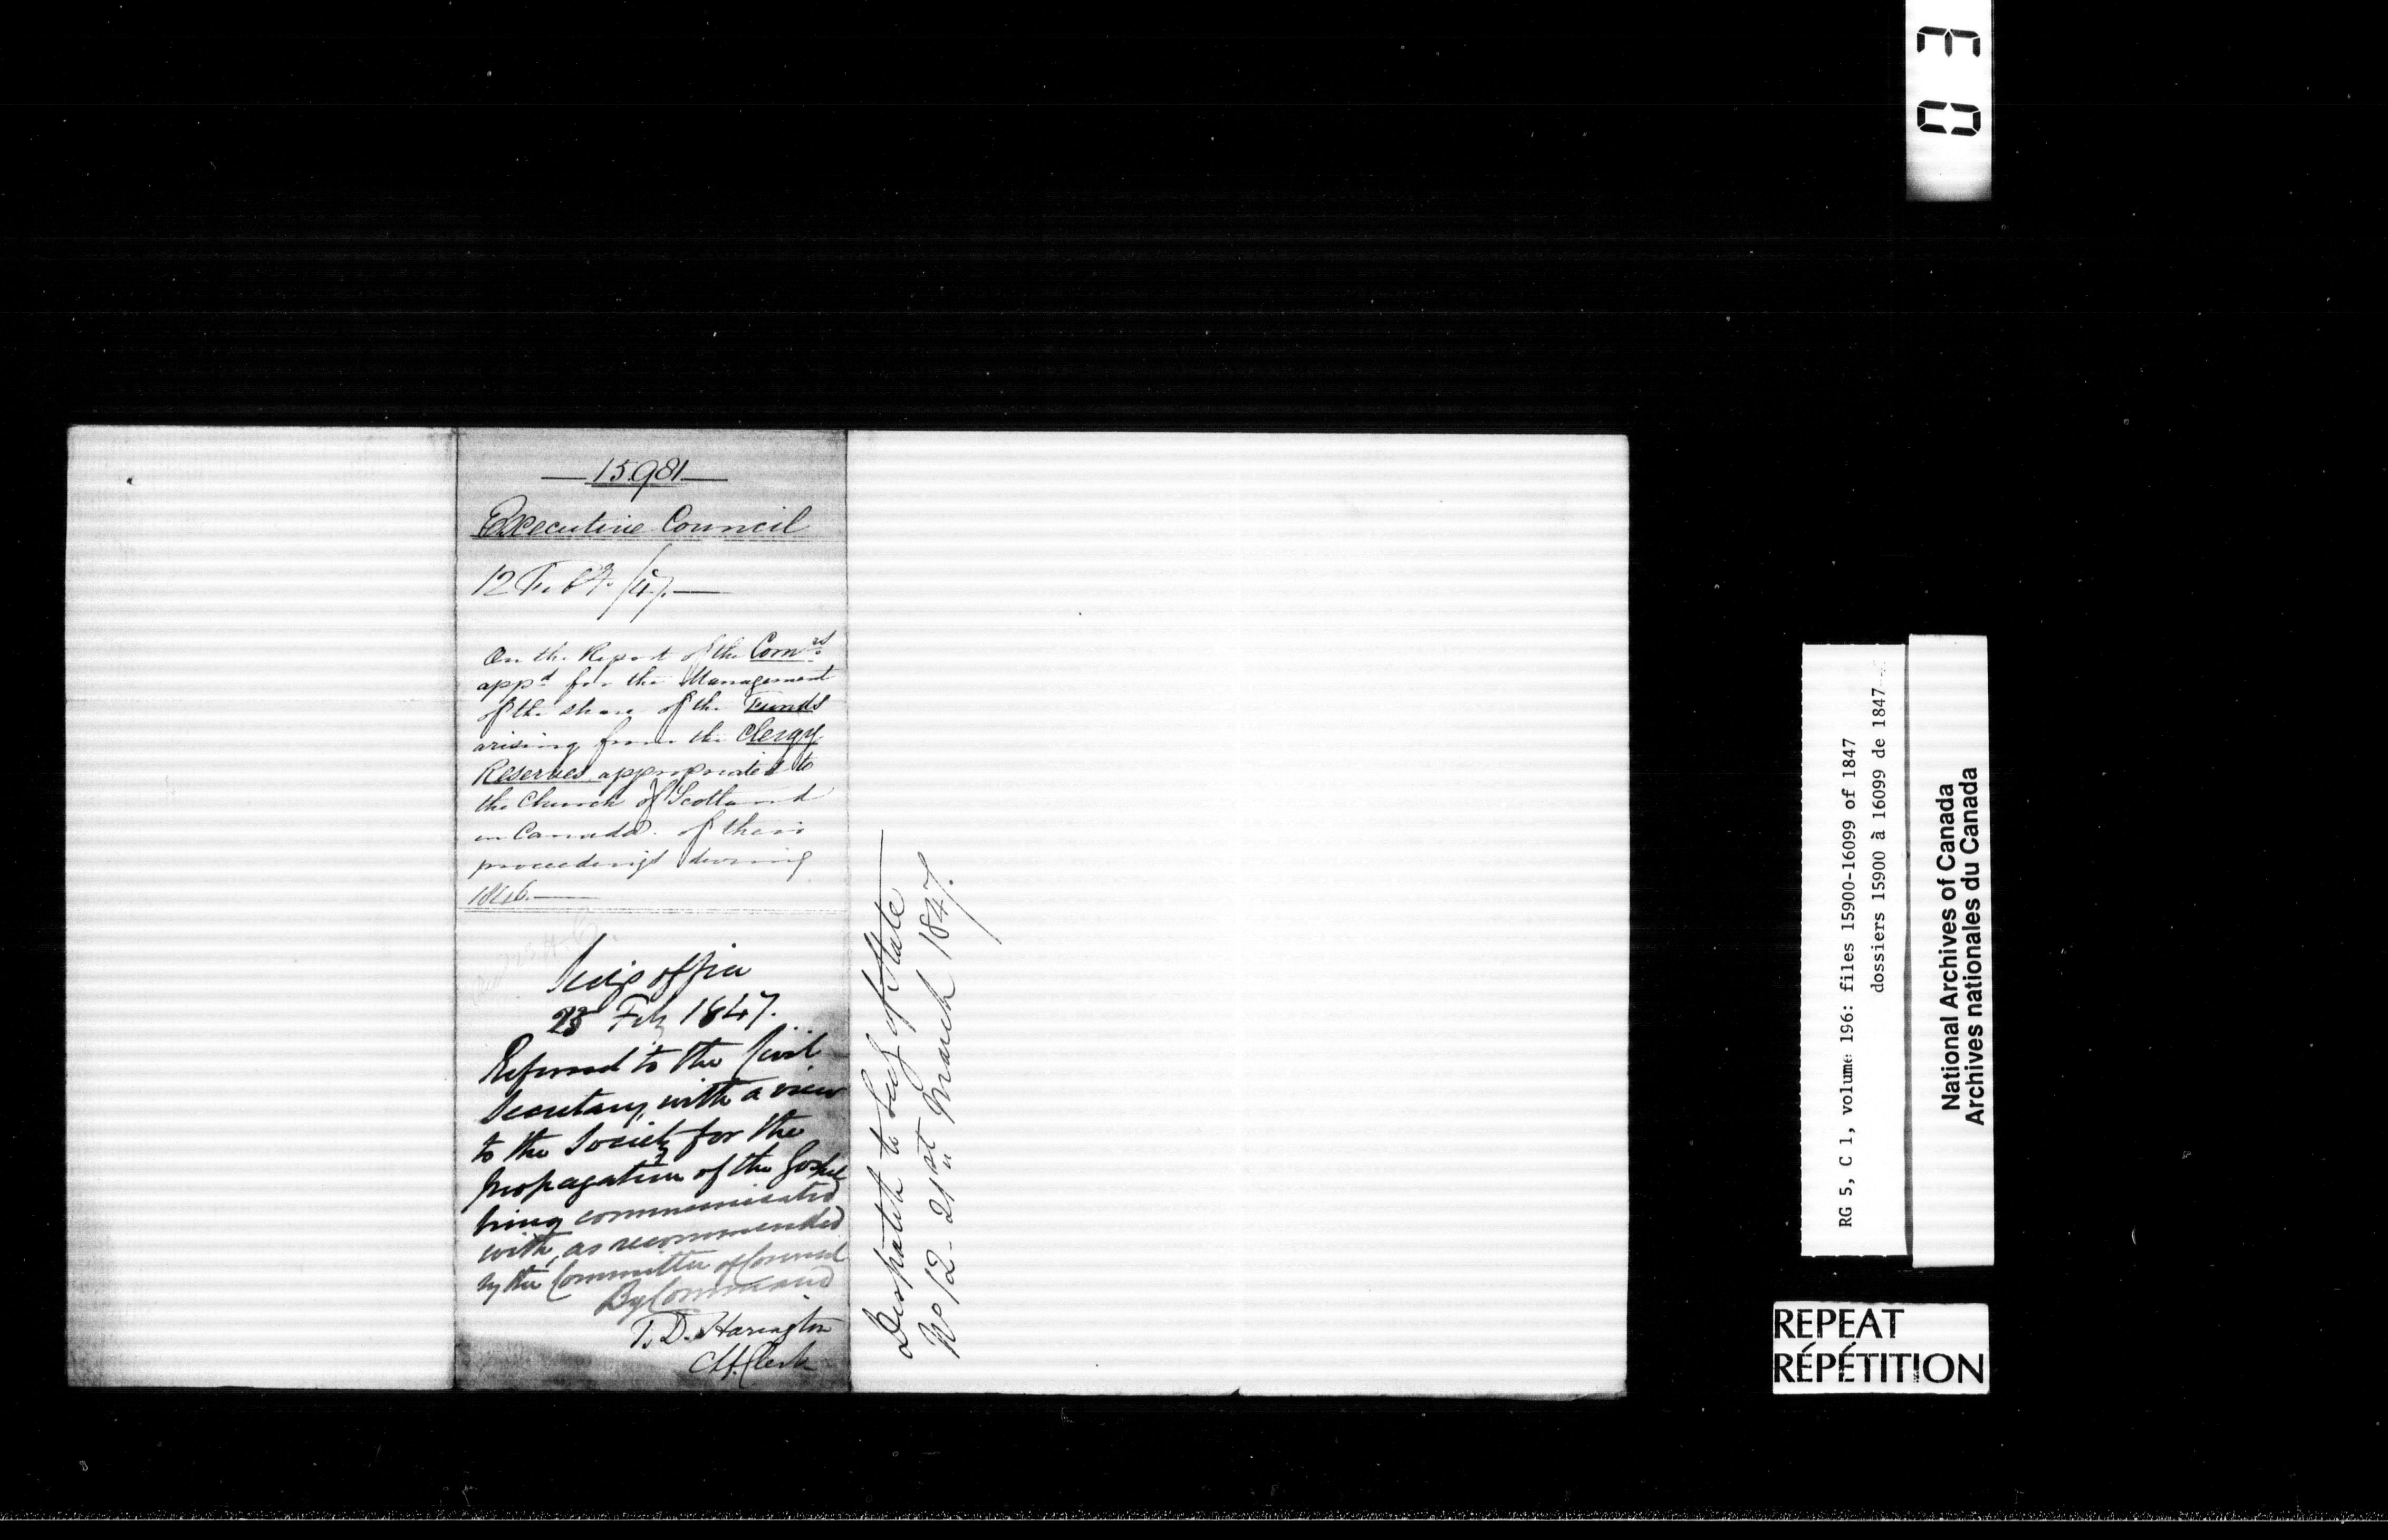 15981
Executive Council
12 Feby. /47.
On the Report of the Comrs.
appd for the Management
of the share of the Funds
arising from the Clergy
Reserves appropriated to
the Church of Scotland
in Canada. of their
proceedings during
1846.
Secy's Office
23 Feby 1847.
Referred to the Civil
Secretary, with a view
to the Society for the
propagation of the Gospel
being communicated
with, as recommended
by the Committee of Council
By Command
T. D. Harington
Ch. Clerk
Despatch to Secy of State
No 12 - 21st March 1847.
03
RG 5, C 1, volume 196: files 15900-16099 of 1847
dossiers 15900 à 16099 de 1847
National Archives of Canada
Archives nationales du Canada
REPEAT
RÉPÉTITION